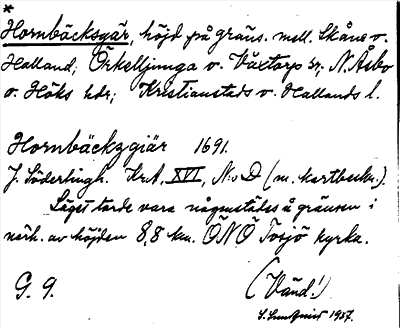 *
Hornbäcksgär, höjd på gräns. mell. Skåne o.
Halland; Örkelljunga o. Våxtorp sr; N. Åsbo
o. Höks hdr; Kristianstads o. Hallands l.
Hornbäckzgiär 1691.
J. Söderlingh. Kr.A. XVI, N:o D (m. kartbeskr.).
Läget torde vara någonstädes å gränsen i
närh. av höjden 8,8 km. ÖNÖ Tosjö kyrka.
G. 9. (Vänd!)
1957.